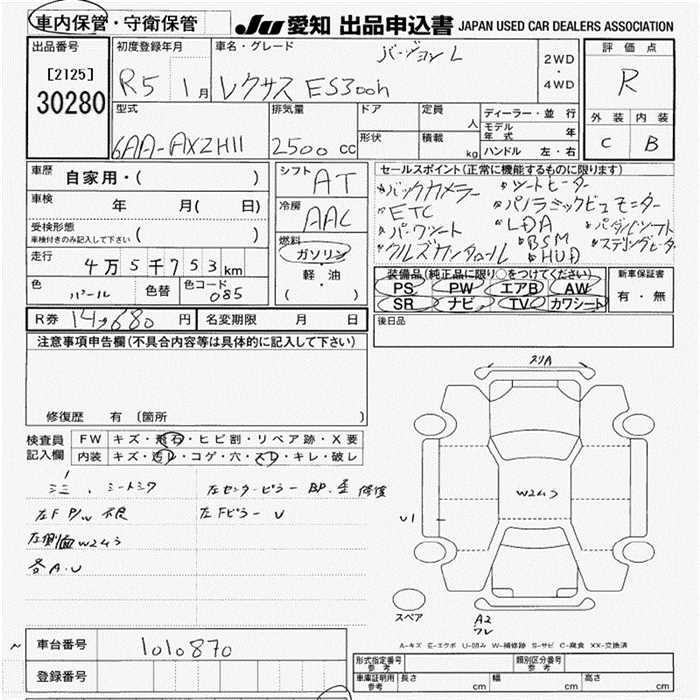 車内保管・守衛保管
JU 愛知 出品申込書 JAPAN USED CAR DEALERS ASSOCIATION
出品番号
[2125]
30280
初度登録年月
R5 1月
車名・グレード
バージョンL
レクサス ES300h
2WD
・
4WD
評価点
R
外装 内装
C B
型式
6AA-AXZH11
排気量
2500 cc
ドア
形状
定員
人
積載
kg
ディーラー・並行
モデル年式 年
ハンドル 左・右
車歴
自家用・( )
車検
年 月( 日)
受検形態
車検付きのみ記入して下さい ( )
走行
4万5千753km
色
パール
色替
色コード
085
シフト
AT
冷房
AAC
燃料
ガソリン
・
軽・油
( )
セールスポイント(正常に機能するものに限ります)
*バックカメラー *シートヒーター
*ETC *パノラミックビューモニター
*パワーシート *LDA *パダルシフト
*BSM *ステリングヒータ
*HUD
装備品(純正品に限り○をつけてください)
PS PW エアB AW
SR ナビ TV カワシート
新車保証書
有・無
R券 14,680 円
名変期限 月 日
後日品
注意事項申告欄(不具合内容等は具体的に記入して下さい)
修復歴 有 〔箇所 〕
検査員
記入欄
FW キズ・飛石・ヒビ割・リペア跡・X要
内装 キズ・汚レ・コゲ・穴・スレ・キレ・破レ
シミ、シートシワ
左センターピラー BP・歪 修復
左F P/W 不良
左Fピラー U
左側面W2・3
各A・U
スリA
W2・3
U1
スペア
A2
ワレ
A-キズ E-エクボ U-凹み W-補修跡 S-サビ C-腐食 XX-交換済
~
車台番号
1010870
登録番号
形式指定番号
参考
類別区分番号
参考
車庫証明用
参考
長さ cm
幅 cm
高さ cm